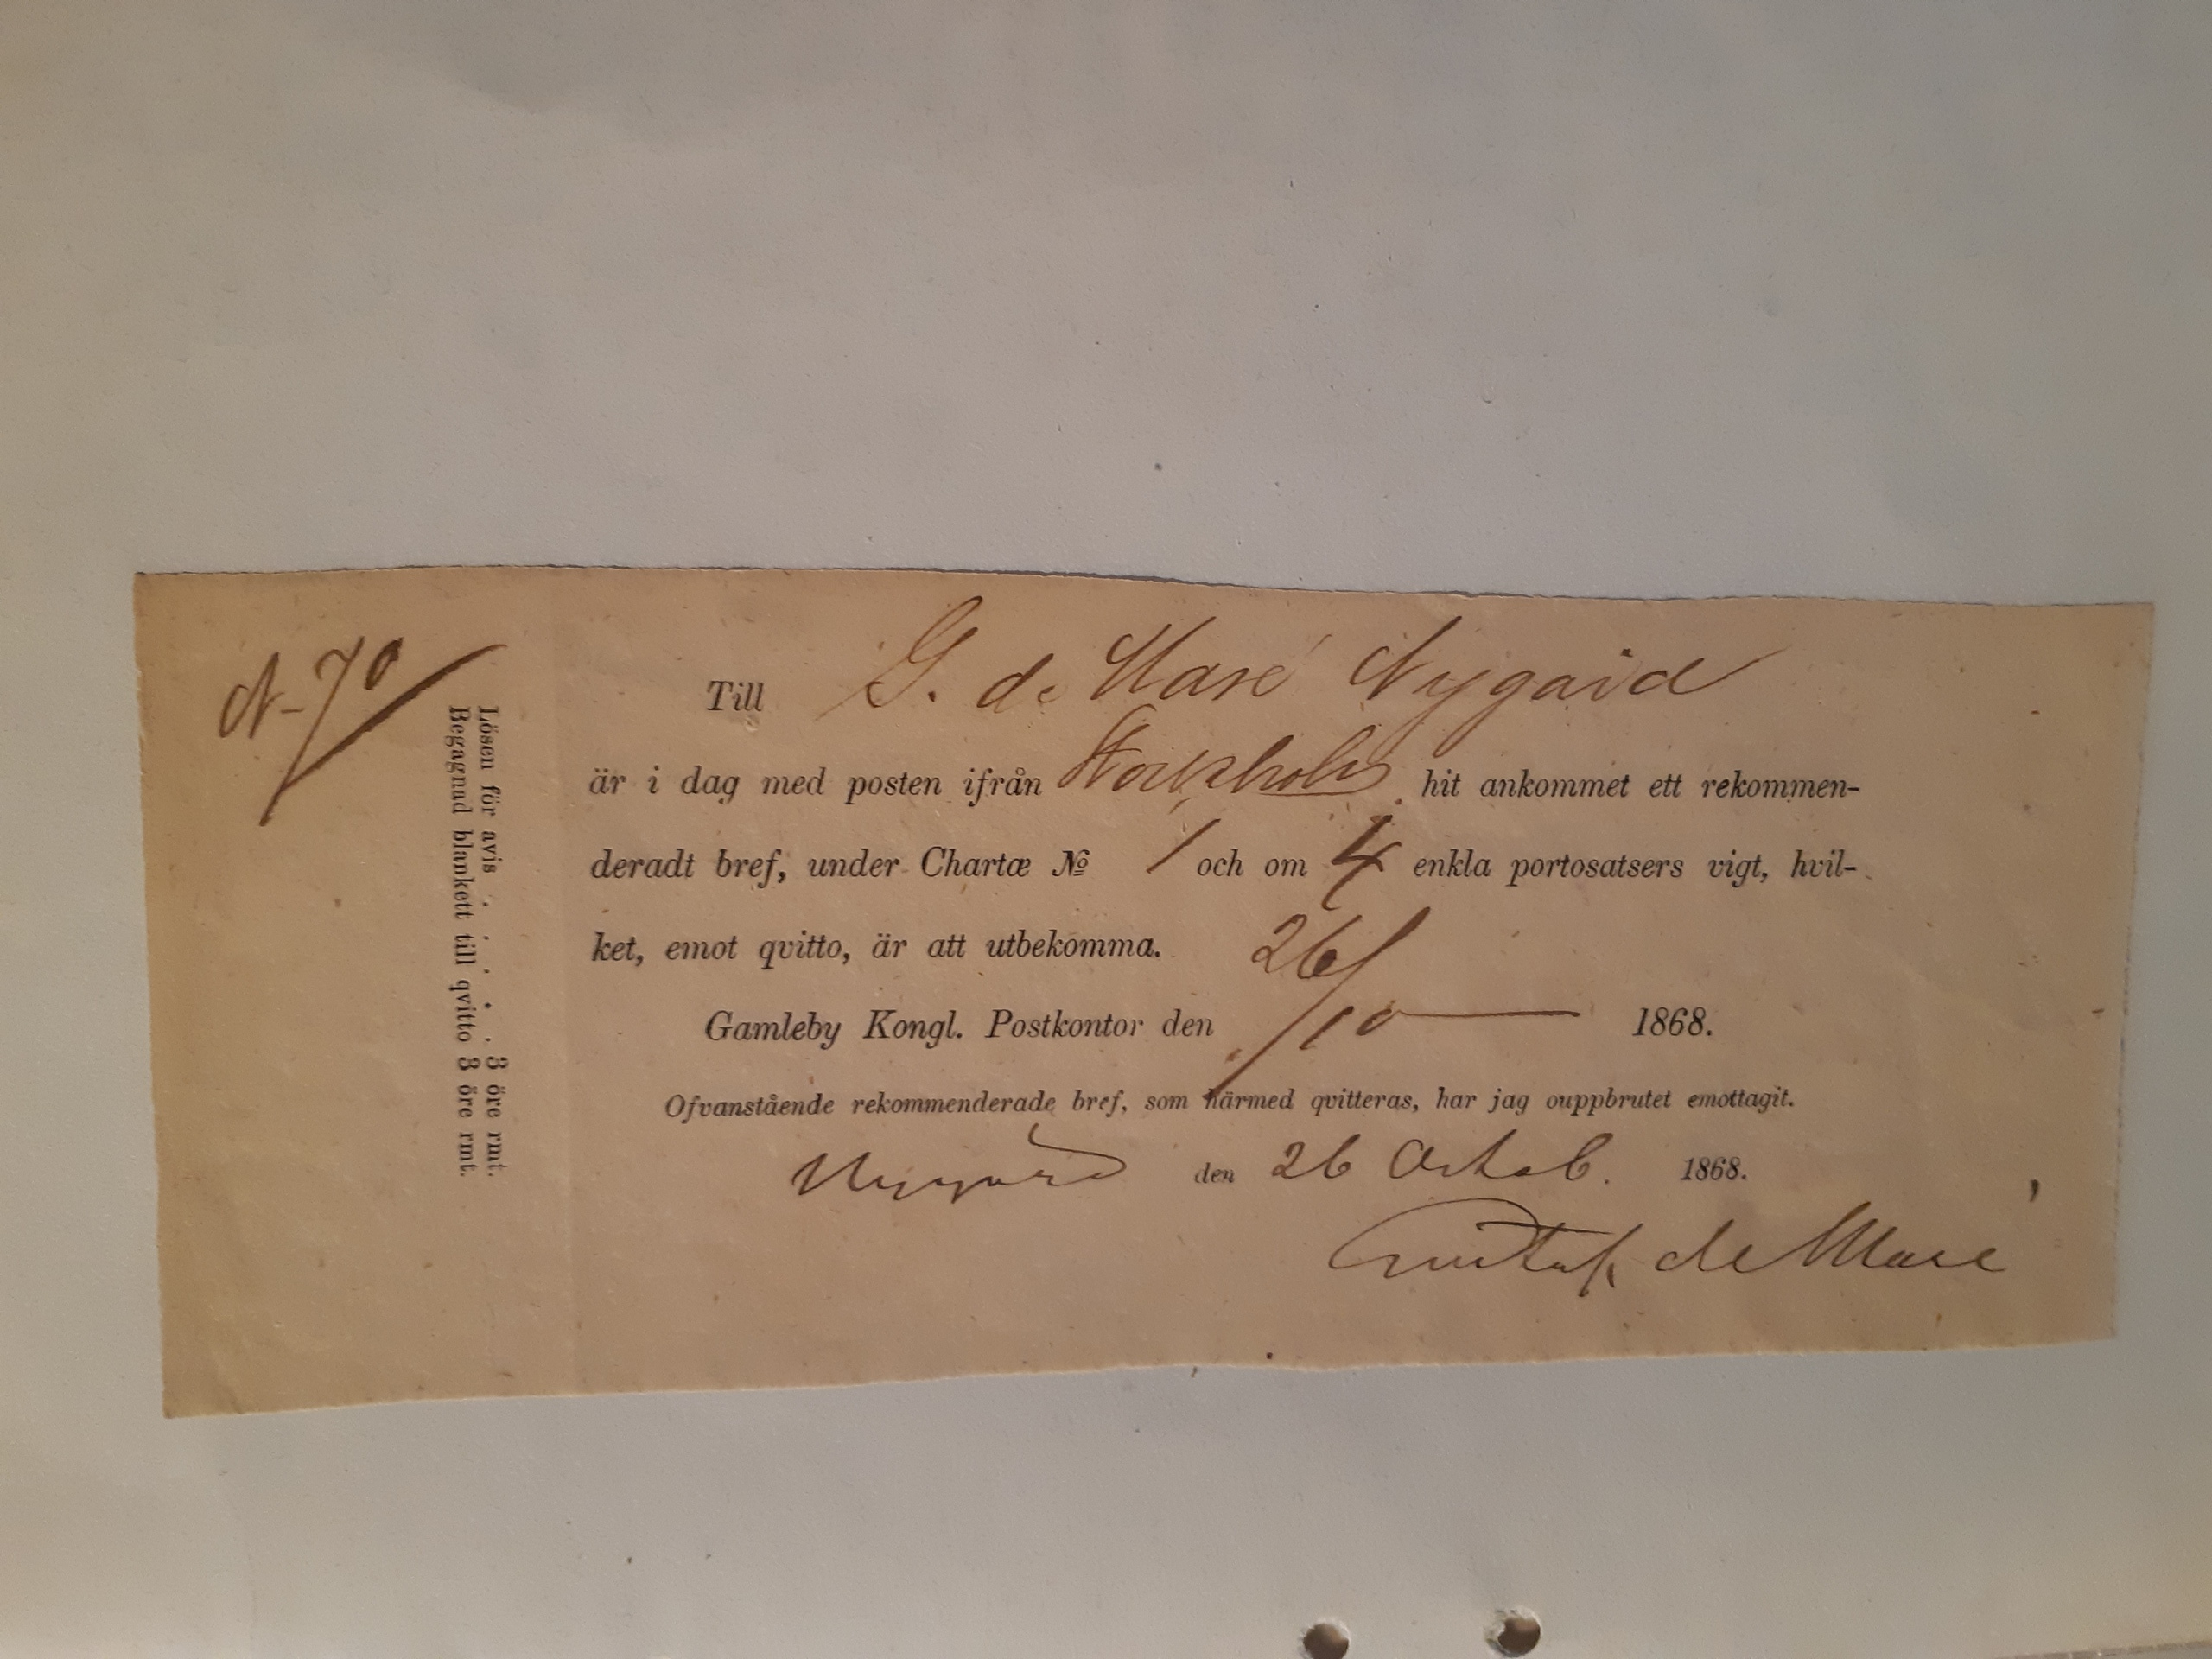 N 70
Lösen för avis . . . . . 3 öre rmt.
Begagnad blankett till qvitto 3 öre rmt.
Till G. de Maré Nygård
är i dag med posten ifrån Stockholm hit ankommet ett rekommen-
deradt bref, under Chartæ № 1 och om 4 enkla portosatsers vigt, hvil-
ket, emot qvitto, är att utbekomma.
Gamleby Kongl. Postkontor den 26/10 1868.
Ofvanstående rekommenderade bref, som härmed qvitteras, har jag ouppbrutet emottagit.
Nygård den 26 Octob. 1868.
Gustaf de Maré